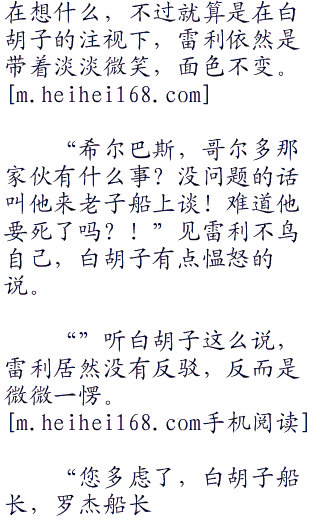 在想什么，不过就算是在白
胡子的注视下，雷利依然是
带着淡淡微笑，面色不变。
[m.heihei168.com]
“希尔巴斯，哥尔多那
家伙有什么事？没问题的话
叫他来老子船上谈！难道他
要死了吗？！”见雷利不鸟
自己，白胡子有点愠怒的
说。
“”听白胡子这么说，
雷利居然没有反驳，反而是
微微一愣。
[m.heihei168.com手机阅读]
“您多虑了，白胡子船
长，罗杰船长